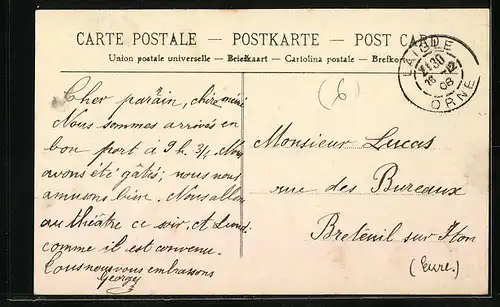 CARTE POSTALE — POSTKARTE — POST CARD
Union postale universelle — Briefkaart — Cartolina postale — Brefkort
LAIGLE
ORNE
30
08
(6)
Cher parain, chère
Nous sommes arrivés en
bon port à 9 h. 3/4. Nous
avons été gâtés; nous nous
amusons bien. Nous allons
au théâtre ce soir, et Lundi
comme il est convenu.
Tous nous vous embrassons
Georges
Monsieur Lucas
rue des Bureaux
Breteuil sur Iton
(Eure.)